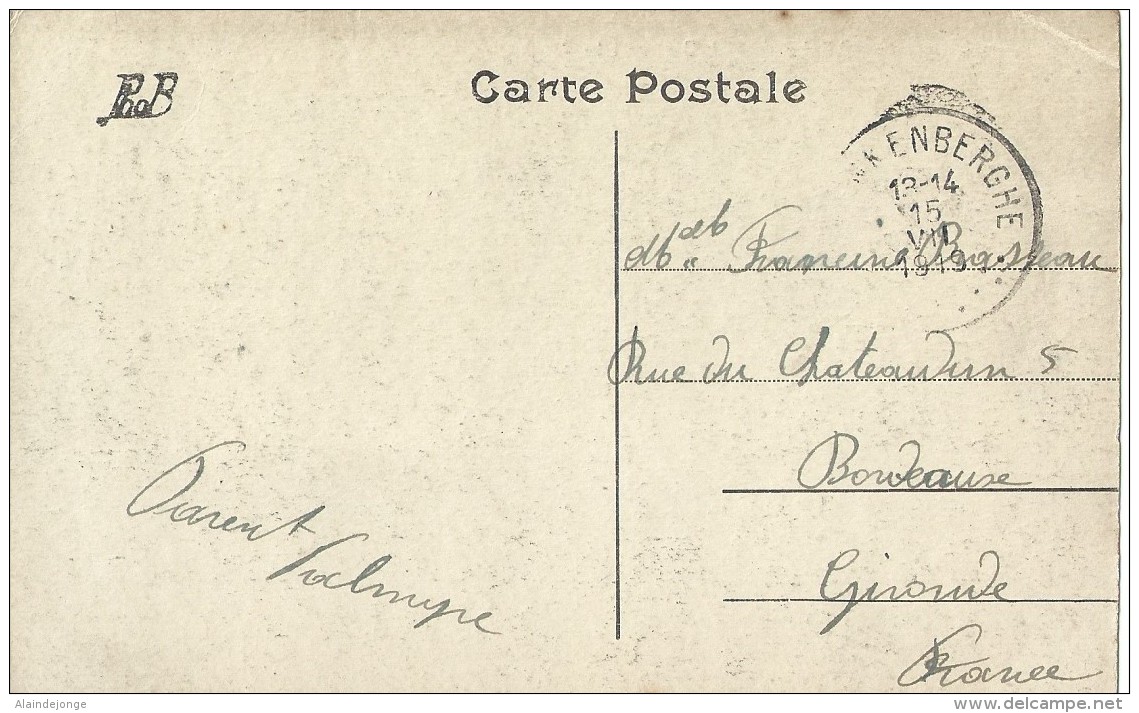 Carte Postale
KENBERGHE
13-14
15
VII
1919
Francine
Rue du Chateaudun 5
Bordeaux
Gironde
France
Parent
Alaindejonge
delcampe.net